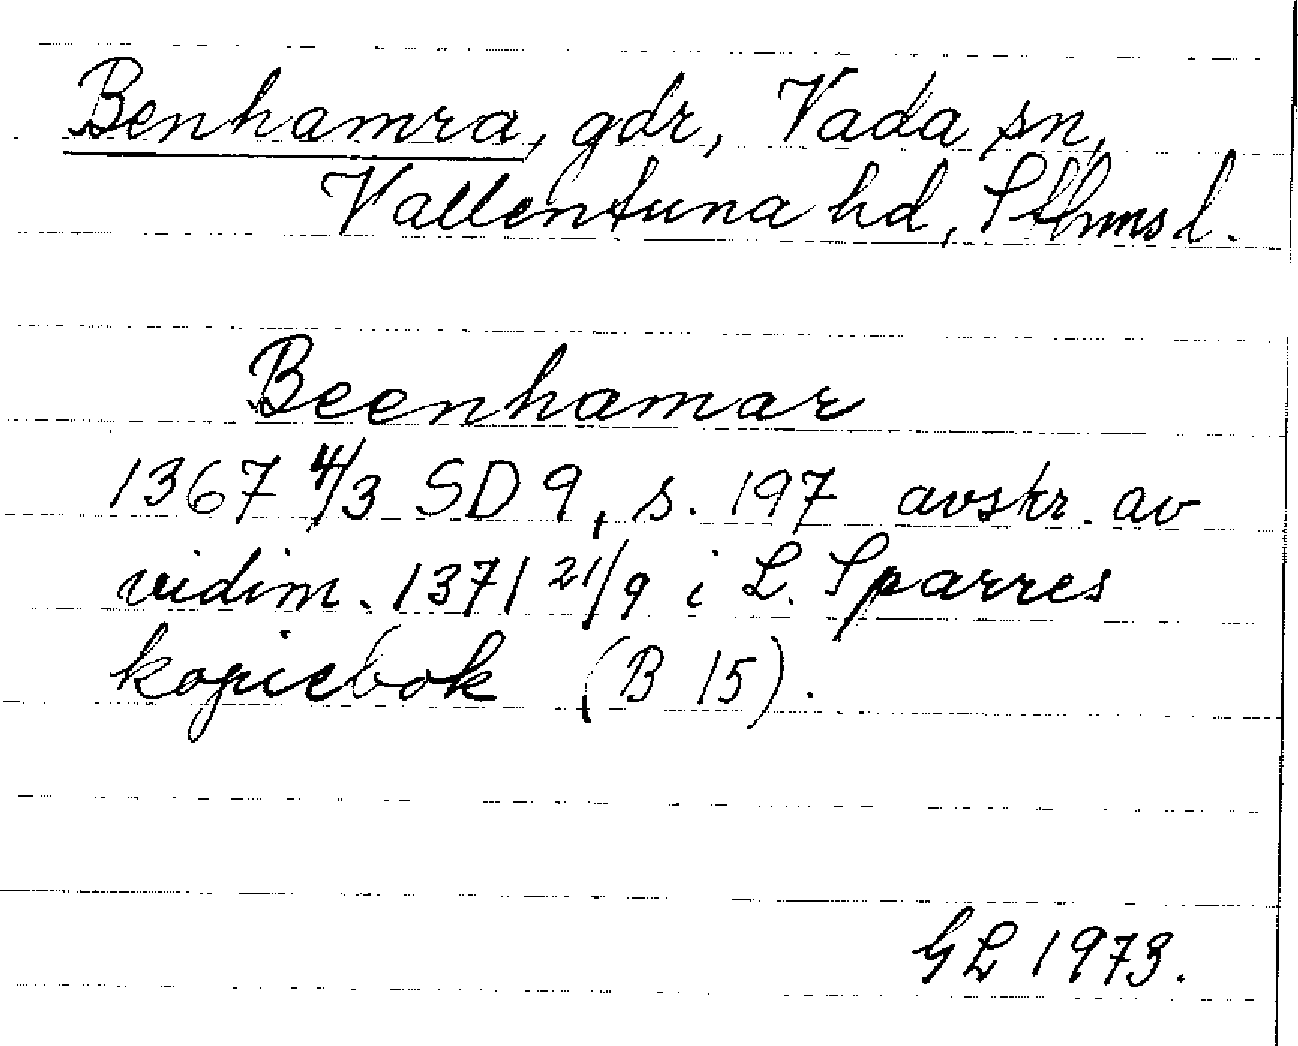 Benhamra, gdr, Vada sn,
Vallentuna hd, Sthmsl.
Beenhamar
1367 4/3 SD 9, s. 197 avskr. av
vidim. 1371 21/9 i L. Sparres
kopiebok (B 15).
GL 1973.